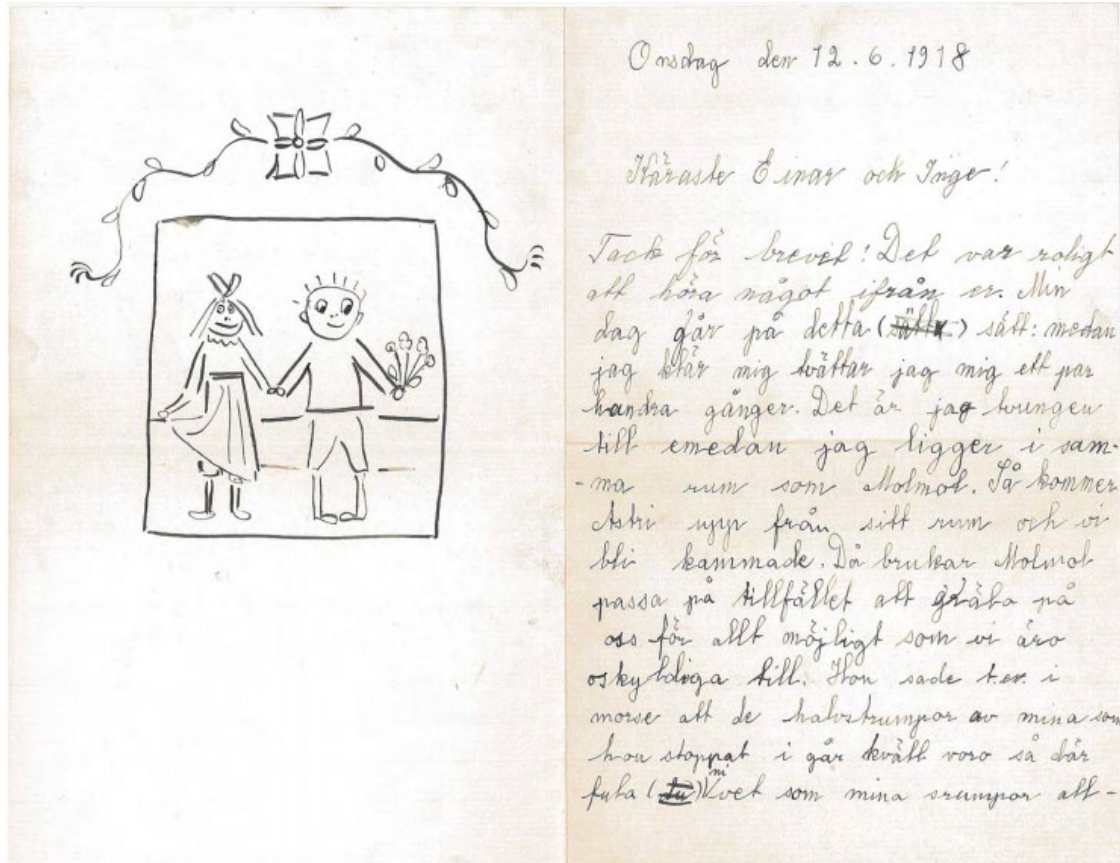 Onsdag den 12.6.1918
Käraste Einar och Inge!
Tack för brevet! Det var roligt
att höra något ifrån er. Min
dag går på detta () sätt: medan
jag klär mig tvättar jag mig ett par
hundra gånger. Det är jag tvungen
till emedan jag ligger i sam-
-ma rum som Molmol. Så kommer
Astri upp från sitt rum och vi
bli kammade. Då brukar Molmol
passa på tillfället att gräla på
oss för allt möjligt som vi äro
oskyldiga till. Hon sade t.ex. i
morse att de halvstrumpor av mina som
hon stoppat i går kväll voro så där
fula (tu) ni vet som mina srumpor allt-